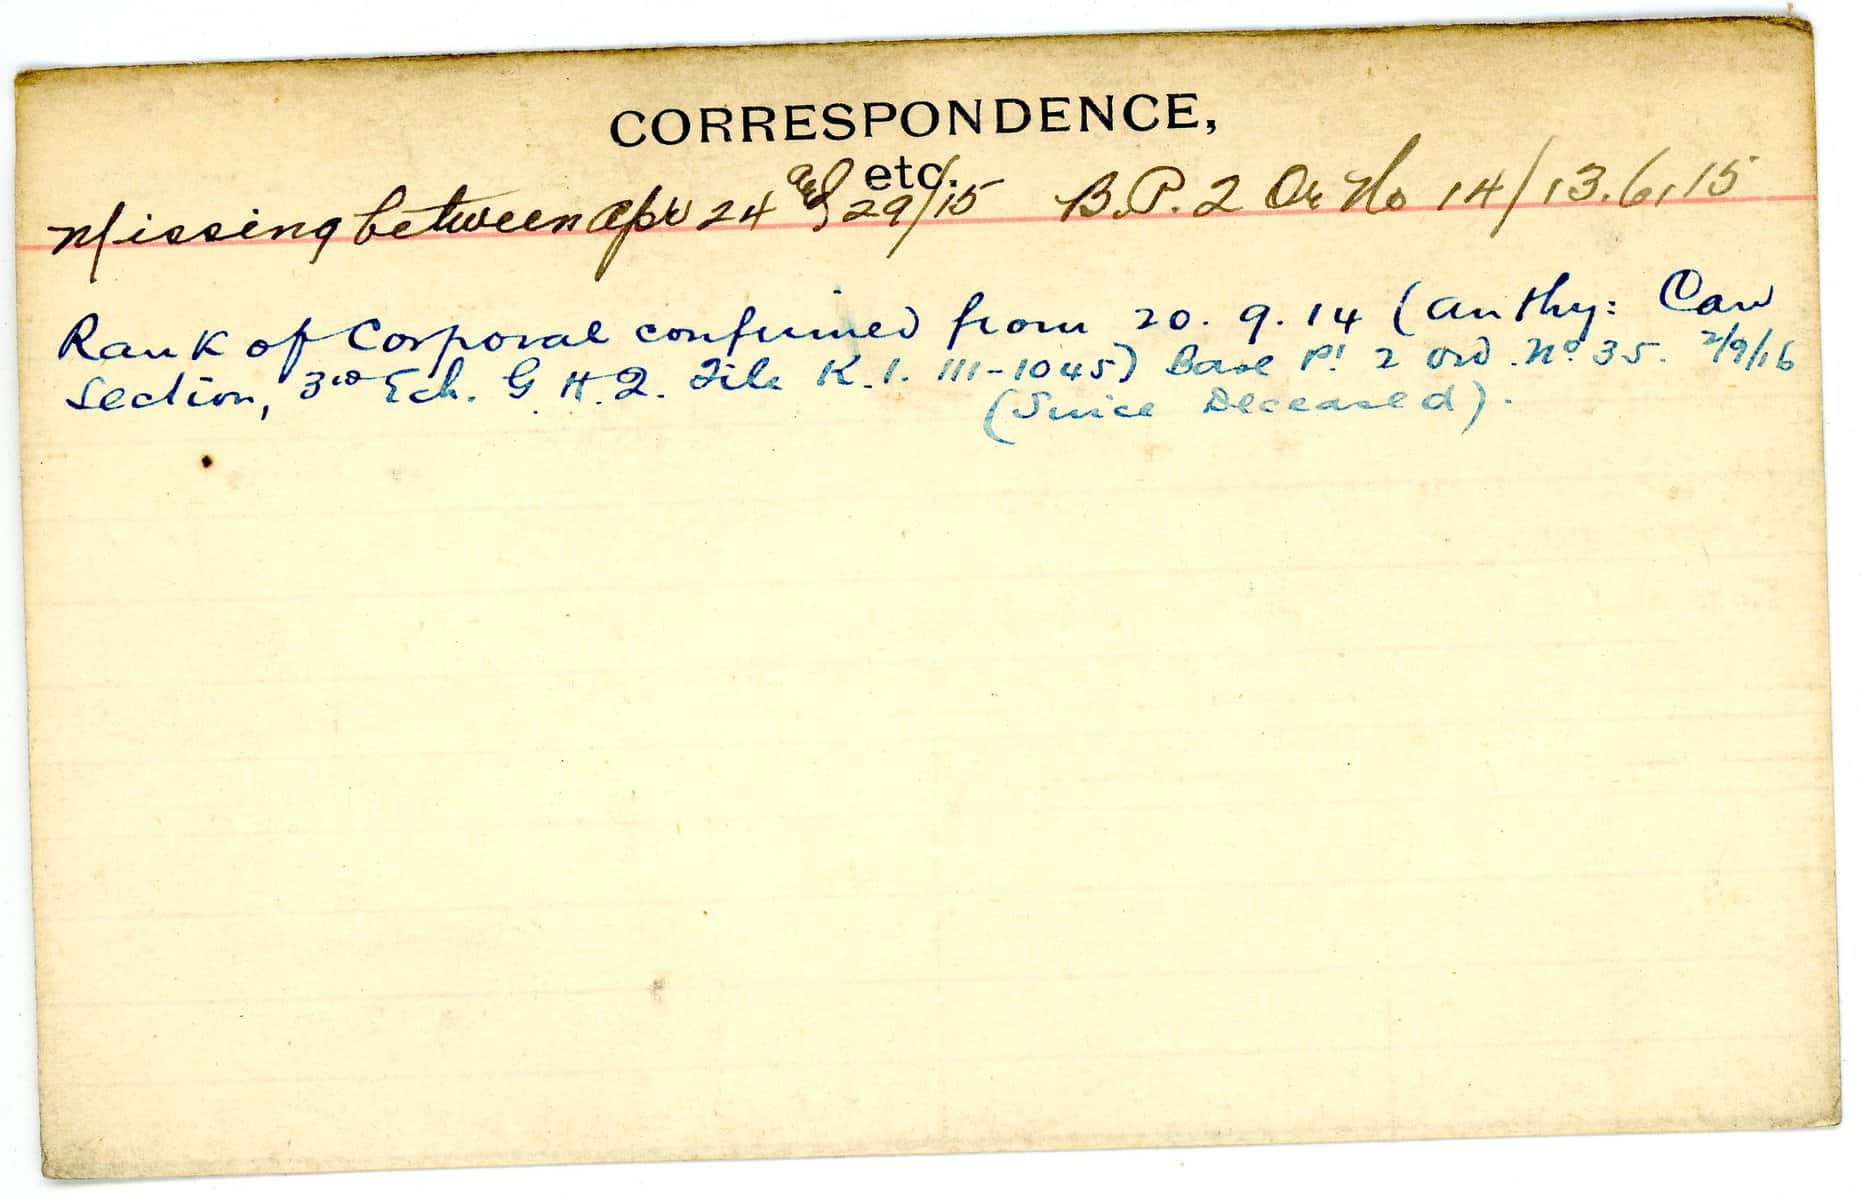 CORRESPONDENCE,
etc.
Missing between Apr 24 and 29/15 B.P. 2 Or No 14/13.6.15
Rank of Corporal confirmed from 20.9.14 (Authy: Can
Section, 3rd Ech. G.H.Q. File K.1. 111-1045) Base Pt 2 Ord. No 35. 2/9/16
(Since Deceased).